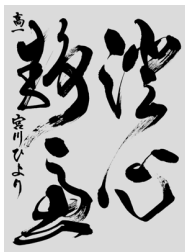 澄心
静慮
高一 宮川ひより